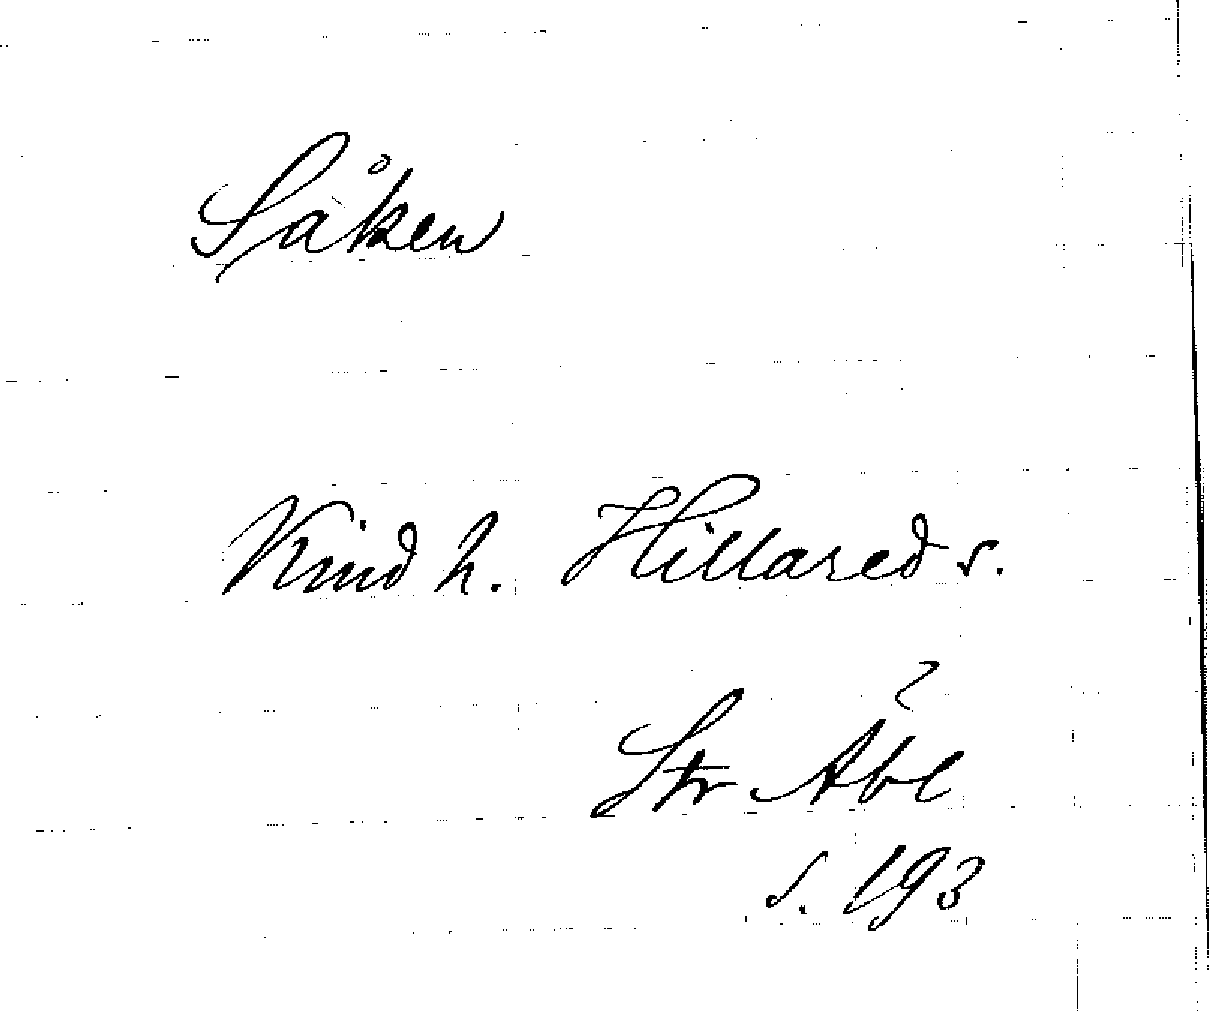 Såken
Kind h. Hillared s.
Str
s. 193